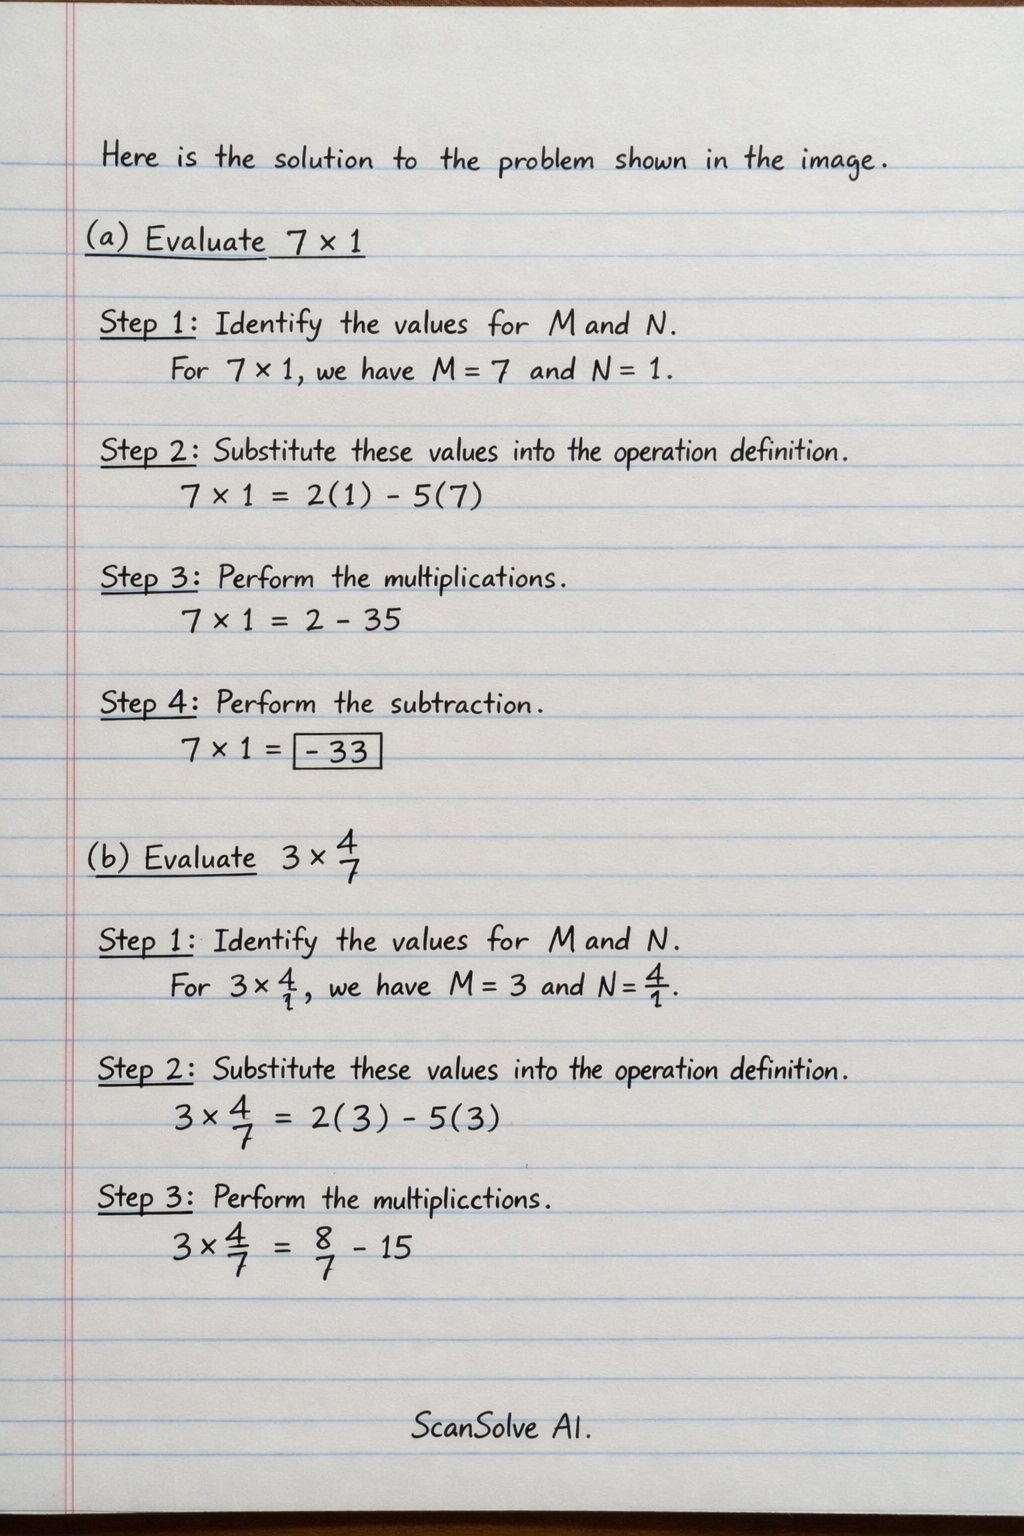 Here is the solution to the problem shown in the image.
(a) Evaluate 7 × 1
Step 1: Identify the values for M and N.
For 7 × 1, we have M = 7 and N = 1.
Step 2: Substitute these values into the operation definition.
7 × 1 = 2(1) - 5(7)
Step 3: Perform the multiplications.
7 × 1 = 2 - 35
Step 4: Perform the subtraction.
7 × 1 = - 33
(b) Evaluate 3 × 4/7
Step 1: Identify the values for M and N.
For 3 × 4/1, we have M = 3 and N = 4/1.
Step 2: Substitute these values into the operation definition.
3 × 4/7 = 2(3) - 5(3)
Step 3: Perform the multiplicctions.
3 × 4/7 = 8/7 - 15
ScanSolve AI.